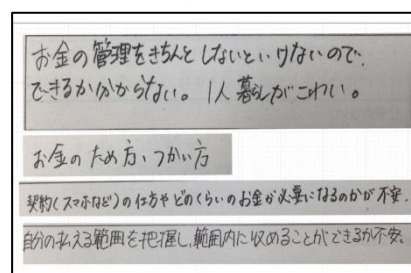 お金の管理をきちんとしないといけないので、
できるか分からない。1人暮らしがこわい。
お金のため方、つかい方
契約(スマホなど)の仕方やどのくらいのお金が必要になるのかが不安。
自分の払える範囲を把握し、範囲内に収めることができるか不安。